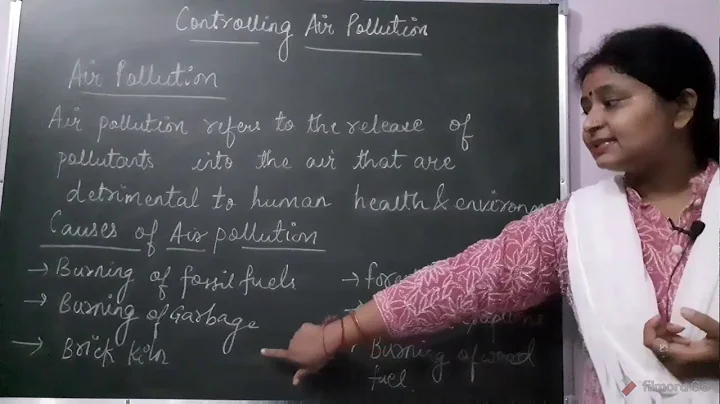 Controlling Air Pollution
Air Pollution
Air pollution refers to the release of
pollutants into the air that are
detrimental to human health & environm
Causes of Air pollution
→ Burning of fossil fuels
→ Burning of Garbage
→ Brick Kiln
→ fore
Burning of wood
fuel
filmora